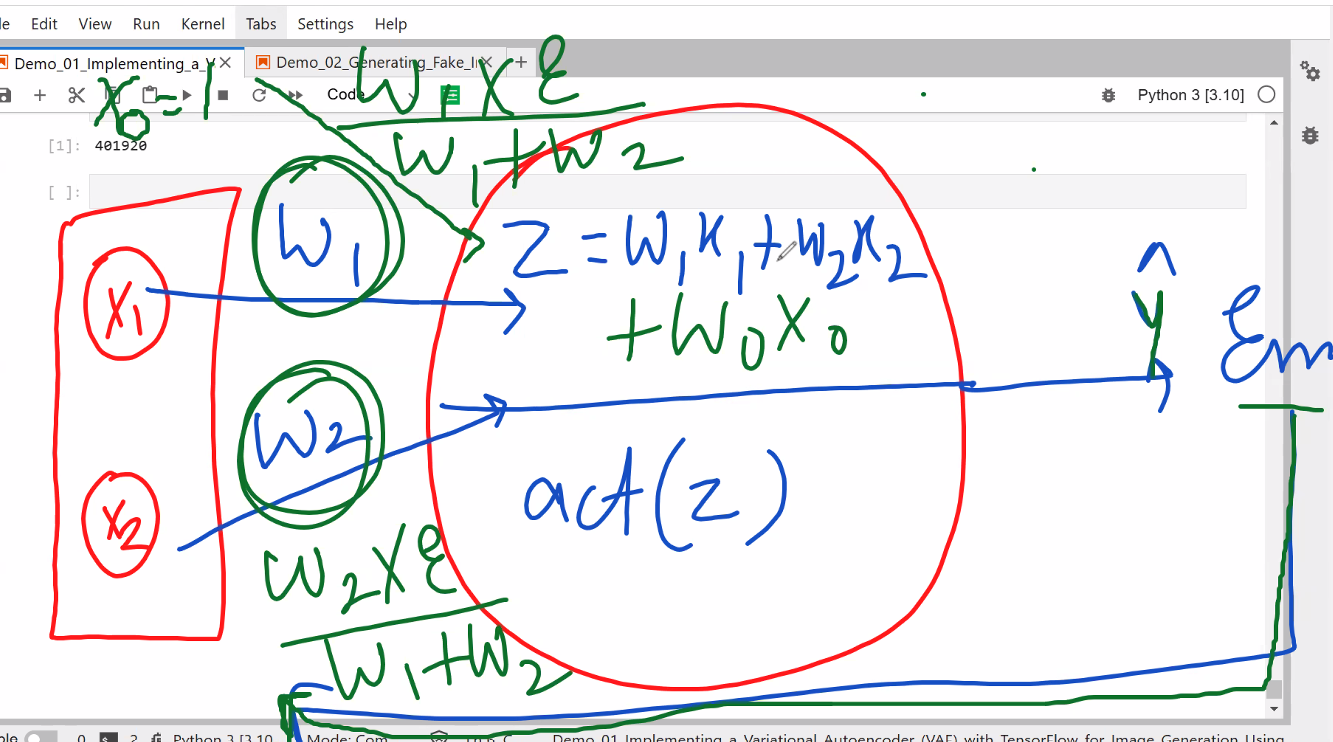 le Edit View Run Kernel Tabs Settings Help
Demo_01_Implementing_a_V Demo_02_Generating_Fake_I
Code Python 3 [3.10]
X₀ = 1
W₁ X E
W₁ + W₂
[1]: 401920
[ ]:
W₁
Z = W₁X₁ + W₂X₂
+ W₀X₀
X₁
ŷ
W₂
act(z)
X₂
W₂ X E
W₁ + W₂
0 Python 3 [3.10 Mode: Com Demo_01_Implementing a Variational Autoencoder (VAE) with TensorFlow for Image Generation Using